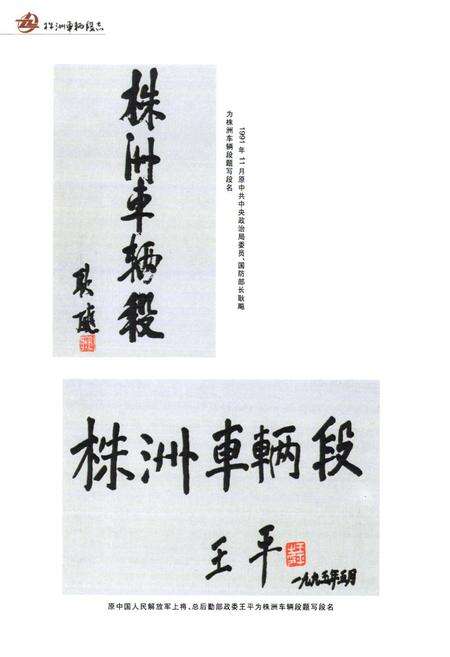 株洲車輛段志
株洲車輛段
耿飚
1991年11月原中共中央政治局委员、国防部长耿飚
为株洲车辆段题写段名
株洲車輛段
王平
一九九五年五月
原中国人民解放军上将、总后勤部政委王平为株洲车辆段题写段名